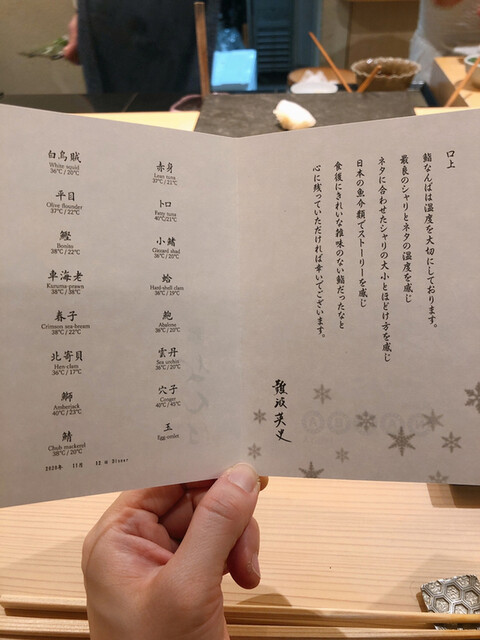 白烏賊
White squid
36℃ / 20℃
平目
Olive flounder
37℃ / 22℃
鰹
Bonito
38℃ / 22℃
車海老
Kuruma-prawn
38℃ / 38℃
春子
Crimson sea-bream
38℃ / 22℃
北寄貝
Hen-clam
36℃ / 17℃
鰤
Amberjack
40℃ / 23℃
鯖
Chub mackerel
38℃ / 20℃
赤身
Lean tuna
37℃ / 21℃
トロ
Fatty tuna
40℃/21℃
小鰭
Gizzard shad
36℃ / 20℃
蛤
Hard shell clams
36℃ / 19℃
鮑
Abalone
36℃ / 20℃
雲丹
Sea urchin
36℃ / 20℃
穴子
Conger
40℃ / 45℃
玉
Egg-omlet
11月 12日 Dinner
口上
鮨なんばは温度を大切にしております。
最良のシャリとネタの温度を感じ
ネタに合わせたシャリの大小とほどけ方を感じ
日本の魚介類でストーリーを感じ
食後にきれいな雑味のない鮨だったなと
心に残っていただければ幸いでございます。
難波英史